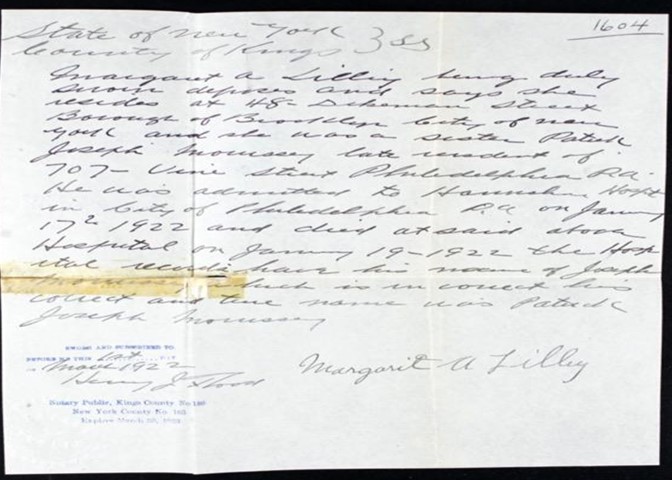 1604
State of New York
County of Kings } SS
Margaret A Lilley being duly
sworn deposes and says she
resides at 48- Dikeman Street
Borough of Brooklyn City of New
York and she was a sister Patrick
Joseph Morrissey late resident of
707- Vine Street Philadelphia P.A.
He was admitted to Hannahan Hospt
in City of Philadelphia P.a. on January
17th 1922 and died at said above
Hospital on January 19-1922 the Hosp
ital records have his name of Joseph
which is in correct his
correct and true name was Patrick
Joseph Morrissey
SWORN AND SUBSCRIBED TO
BEFORE ME THIS 1st DAY
March 1922
Henry J
Margaret A Lilley
Notary Public, Kings County No.
New York County No.
Expires March 30,